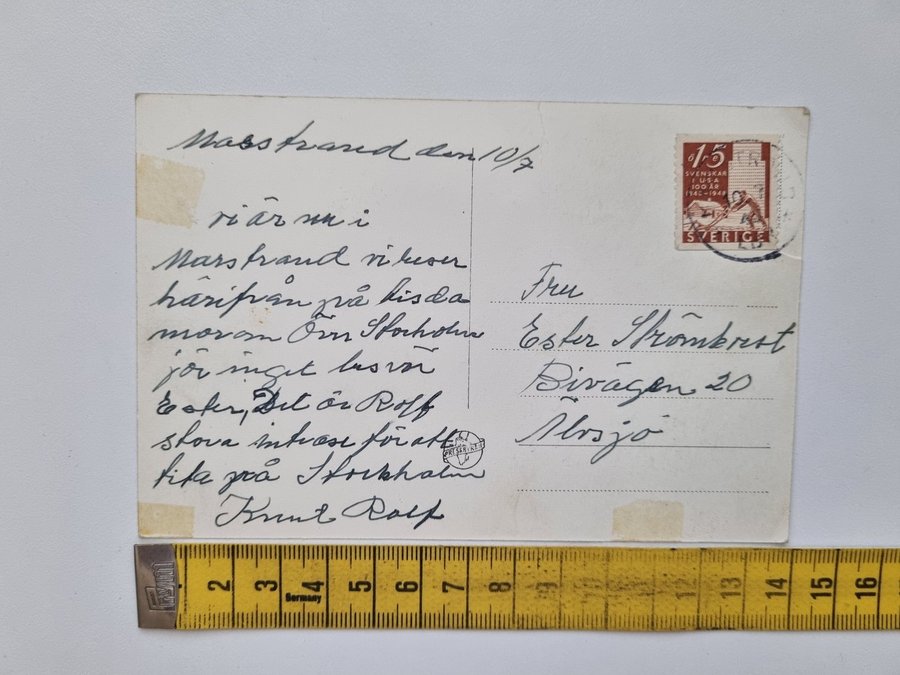 Marstrand den 10/7
vi är nu i
Marstrand vi reser
härifrån på tisda
moron Övr Stocholm
jör inget besvär
Ester, Det är Rolf
stora intrase för att
tita på Stockholm
Knut Rolf
15
SVENSKAR
I USA
100 ÅR
1948-1948
SVERIGE
Fru
Ester Strömkvist
Bivägen 20
Älvsjö
2 3 4 5 6 7 8 9 10 11 12 13 14 15 16
Germany